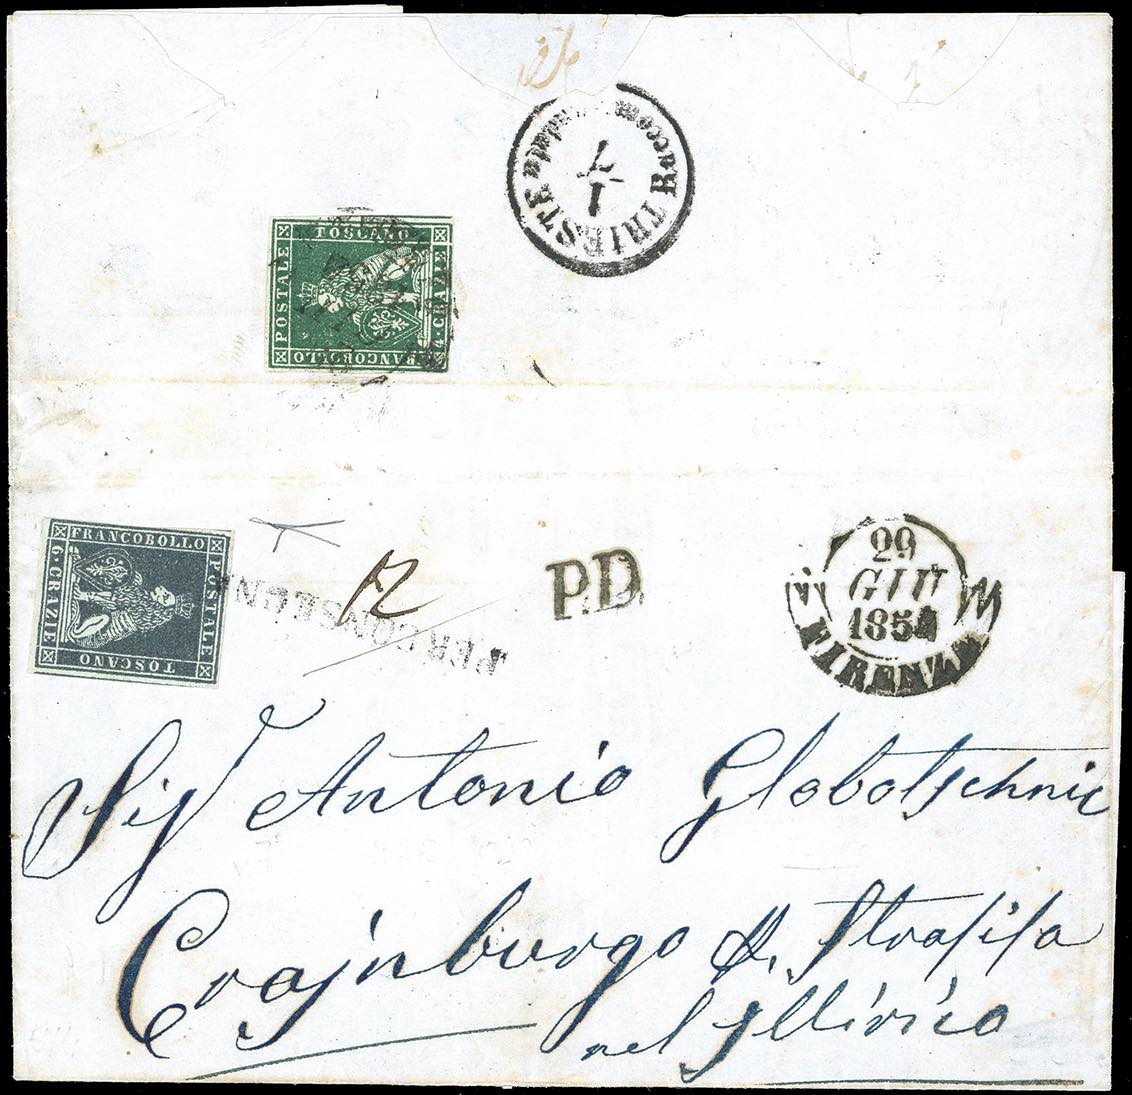 TRIESTE Raccomandata
1/7
TOSCANO
POSTALE
4·CRAZIE
FRANCOBOLLO
FRANCOBOLLO
6·CRAZIE
POSTALE
TOSCANO
12
PER CONSEGNA
P.D.
29
GIU
1854
FIRENZE
Sig Antonio Globotschnic
Crajnburgo
nel Illirico